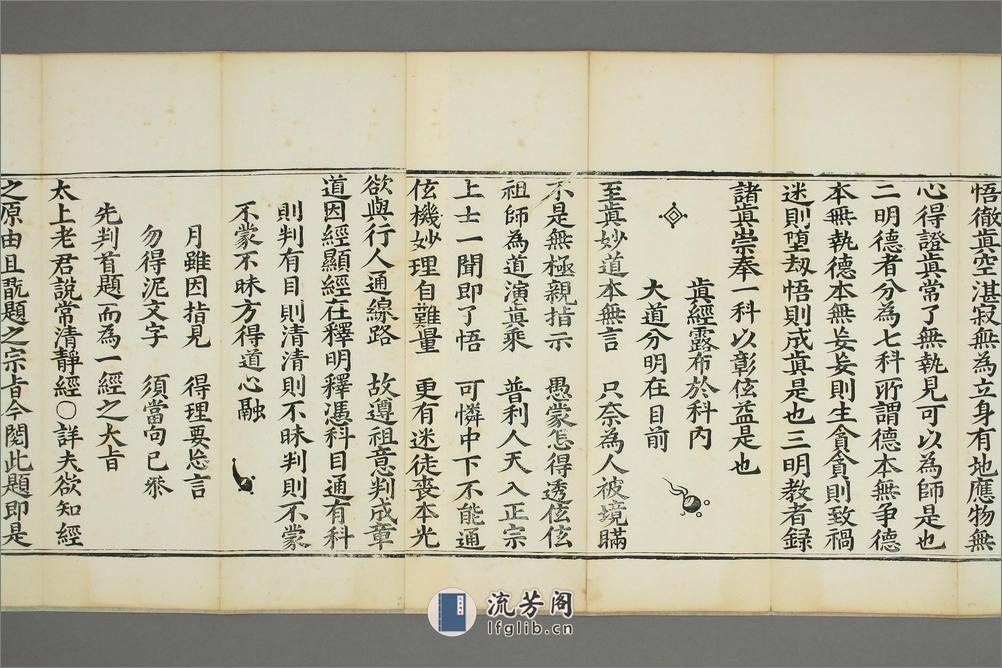 悟徹眞空湛寂無為立身有地應物無
心得證眞常了無執見可以為師是也
二明德者分為七科所謂德本無争德
本無執德本無妄妄則生貪貪則致禍
迷則墮刼悟則成眞是也三明教者録
諸眞崇奉一科以彰佉益是也
眞經露布於科内
大道分明在目前
至眞妙道本無言　只奈為人被境瞞
不是無極親指示　愚蒙怎得透佉佉
祖師為道演眞乘　普利人天入正宗
上士一聞即了悟　可憐中下不能通
佉機妙理自難量　更有迷徒喪本光
欲與行人通線路　故遵祖意判成章
道因經顯經在釋明釋憑科目通有科
則判有目則清清則不昧判則不蒙
不蒙不昧方得道心融
月雖因指見　得理要忘言
勿得泥文字　須當向己叅
先判首題而為一經之大㫖
太上老君說常清靜經○詳夫欲知經
之原由且翫題之宗㫖今閱此題即是
流芳阁
lfglib.cn